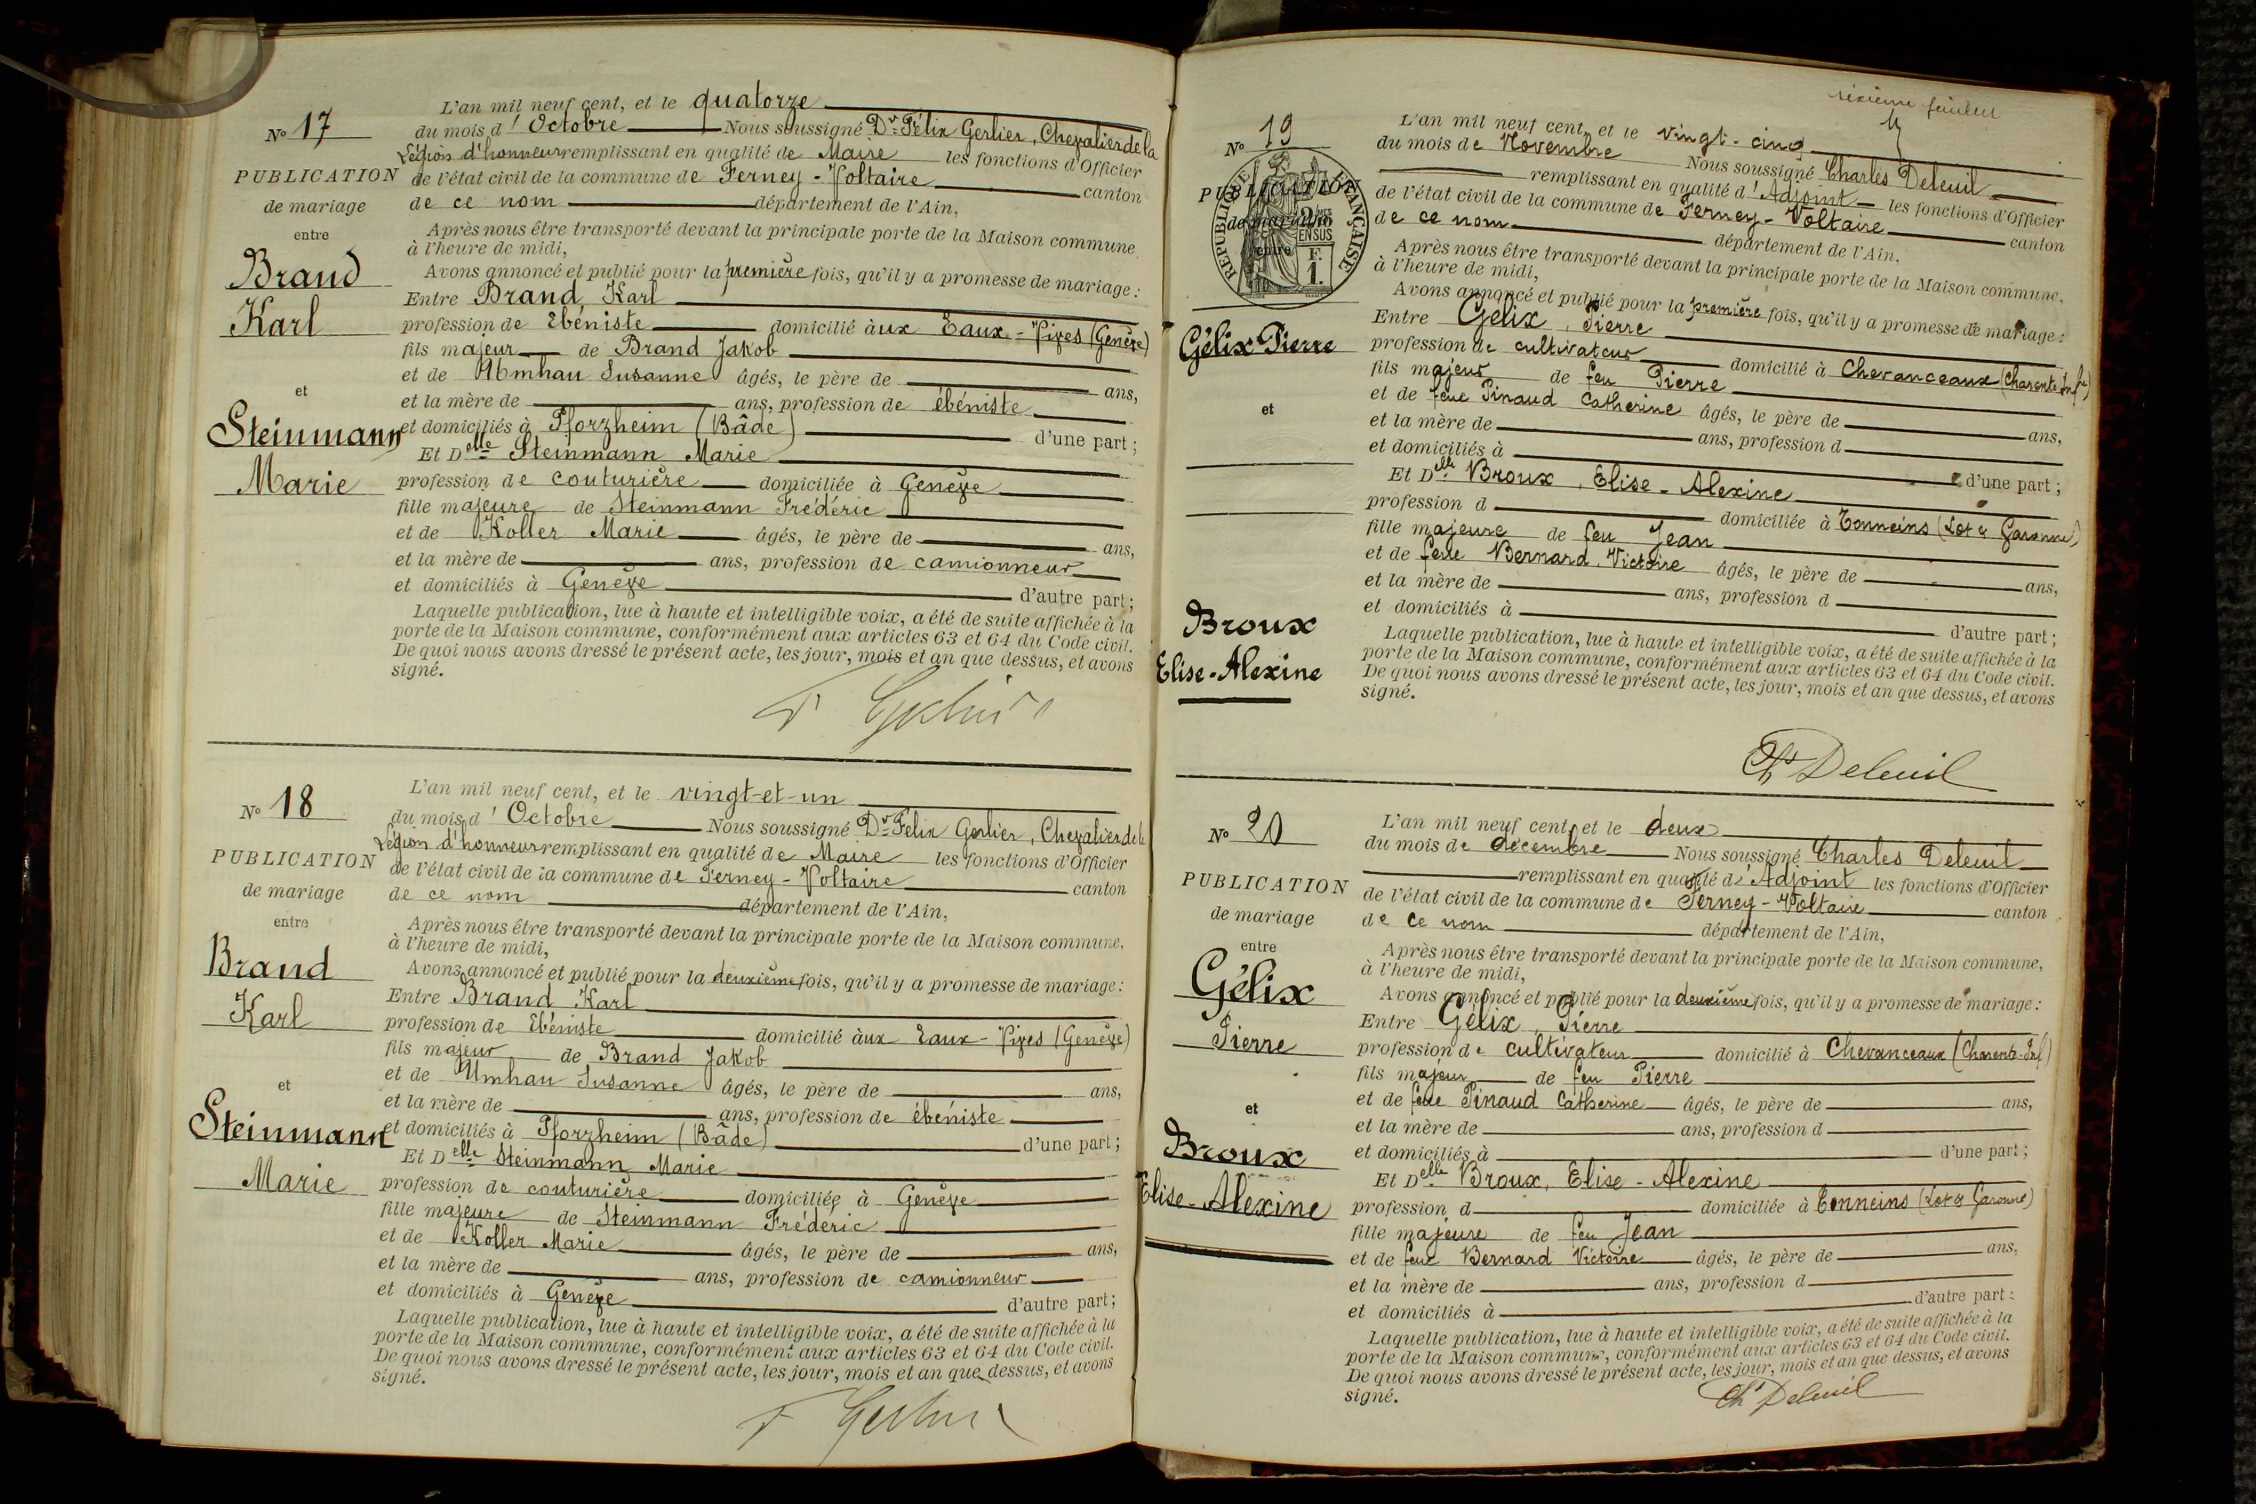 No 17
PUBLICATION
de mariage
entre
Brand
Karl
et
Steinmann
Marie
L'an mil neuf cent, et le quatorze
du mois d'Octobre Nous soussigné Dr Félix Gerlier, Chevalier de la
Légion d'honneur remplissant en qualité de Maire les fonctions d'Officier
de l'état civil de la commune de Ferney-Voltaire canton
de ce nom département de l'Ain,
Après nous être transporté devant la principale porte de la Maison commune
à l'heure de midi,
Avons annoncé et publié pour la première fois, qu'il y a promesse de mariage :
Entre Brand Karl
profession de Ebéniste domicilié àux Eaux-Vives (Genève)
fils majeur de Brand Jakob
et de Umhau Susanne âgés, le père de ans,
et la mère de ans, profession de ébéniste
et domiciliés à Pforzheim (Bâde) d'une part ;
Et Delle Steinmann Marie
profession de couturière domiciliée à Genève
fille majeure de Steinmann Frédéric
et de Koller Marie âgés, le père de ans,
et la mère de ans, profession de camionneur
et domiciliés à Genève d'autre part ;
Laquelle publication, lue à haute et intelligible voix, a été de suite affichée à la
porte de la Maison commune, conformément aux articles 63 et 64 du Code civil.
De quoi nous avons dressé le présent acte, les jour, mois et an que dessus, et avons
signé.
F Gerlier
No 18
PUBLICATION
de mariage
entre
Brand
Karl
et
Steinmann
Marie
L'an mil neuf cent, et le vingt-et-un
du mois d'Octobre Nous soussigné Dr Félix Gerlier, Chevalier de la
Légion d'honneur remplissant en qualité de Maire les fonctions d'Officier
de l'état civil de la commune de Ferney-Voltaire canton
de ce nom département de l'Ain,
Après nous être transporté devant la principale porte de la Maison commune,
à l'heure de midi,
Avons annoncé et publié pour la deuxième fois, qu'il y a promesse de mariage :
Entre Brand Karl
profession de Ebéniste domicilié àux Eaux-Vives (Genève)
fils majeur de Brand Jakob
et de Umhau Susanne âgés, le père de ans,
et la mère de ans, profession de ébéniste
et domiciliés à Pforzheim (Bâde) d'une part ;
Et Delle Steinmann Marie
profession de couturière domiciliée à Genève
fille majeure de Steinmann Frédéric
et de Koller Marie âgés, le père de ans,
et la mère de ans, profession de camionneur
et domiciliés à Genève d'autre part ;
Laquelle publication, lue à haute et intelligible voix, a été de suite affichée à la
porte de la Maison commune, conformément aux articles 63 et 64 du Code civil.
De quoi nous avons dressé le présent acte, les jour, mois et an que dessus, et avons
signé.
F Gerlier
sixième feuillet
No 19
PUBLICATION
de mariage
entre
REPUBLIQUE FRANÇAISE
EN SUS
F.
1.
Gélix Pierre
et
Broux
Elise-Alexine
L'an mil neuf cent, et le vingt-cinq
du mois de Novembre Nous soussigné Charles Deleuil
remplissant en qualité d'Adjoint les fonctions d'Officier
de l'état civil de la commune de Ferney-Voltaire canton
de ce nom département de l'Ain,
Après nous être transporté devant la principale porte de la Maison commune,
à l'heure de midi,
Avons annoncé et publié pour la première fois, qu'il y a promesse de mariage :
Entre Gélix, Pierre
profession de cultivateur domicilié à Chevanceaux (Charente Infre)
fils majeur de feu Pierre
et de feue Pinaud Catherine âgés, le père de ans,
et la mère de ans, profession d
et domiciliés à d'une part ;
Et Delle Broux, Elise-Alexine
profession d domiciliée à Tonneins (Lot & Garonne)
fille majeure de feu Jean
et de feue Bernard, Victoire âgés, le père de ans,
et la mère de ans, profession d
et domiciliés à d'autre part ;
Laquelle publication, lue à haute et intelligible voix, a été de suite affichée à la
porte de la Maison commune, conformément aux articles 63 et 64 du Code civil.
De quoi nous avons dressé le présent acte, les jour, mois et an que dessus, et avons
signé.
Chs Deleuil
No 20
PUBLICATION
de mariage
entre
Gélix
Pierre
et
Broux
Elise-Alexine
L'an mil neuf cent, et le deux
du mois de décembre Nous soussigné Charles Deleuil
remplissant en qualité d'Adjoint les fonctions d'Officier
de l'état civil de la commune de Ferney-Voltaire canton
de ce nom département de l'Ain,
Après nous être transporté devant la principale porte de la Maison commune,
à l'heure de midi,
Avons annoncé et publié pour la deuxième fois, qu'il y a promesse de mariage :
Entre Gélix, Pierre
profession de cultivateur domicilié à Chevanceaux (Charente-Inf)
fils majeur de feu Pierre
et de feue Pinaud Catherine âgés, le père de ans,
et la mère de ans, profession d
et domiciliés à d'une part ;
Et Delle Broux, Elise-Alexine
profession d domiciliée à Tonneins (Lot & Garonne)
fille majeure de feu Jean
et de feue Bernard Victoire âgés, le père de ans,
et la mère de ans, profession d
et domiciliés à d'autre part :
Laquelle publication, lue à haute et intelligible voix, a été de suite affichée à la
porte de la Maison commune, conformément aux articles 63 et 64 du Code civil.
De quoi nous avons dressé le présent acte, les jour, mois et an que dessus, et avons
signé.
Chs Deleuil